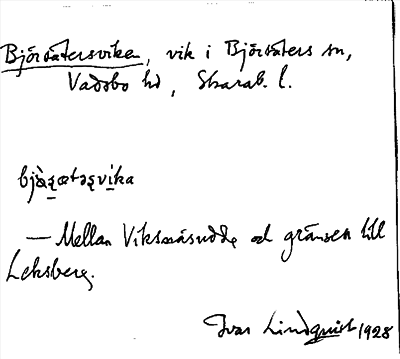 Björsätersviken, vik i Björsäters sn,
Vadsbo hd, Skarab. l.
bjὰʂætəʂvika
— Mellan Viksnäsudde och gränsen till
Leksberg.
Ivar Lindquist 1928